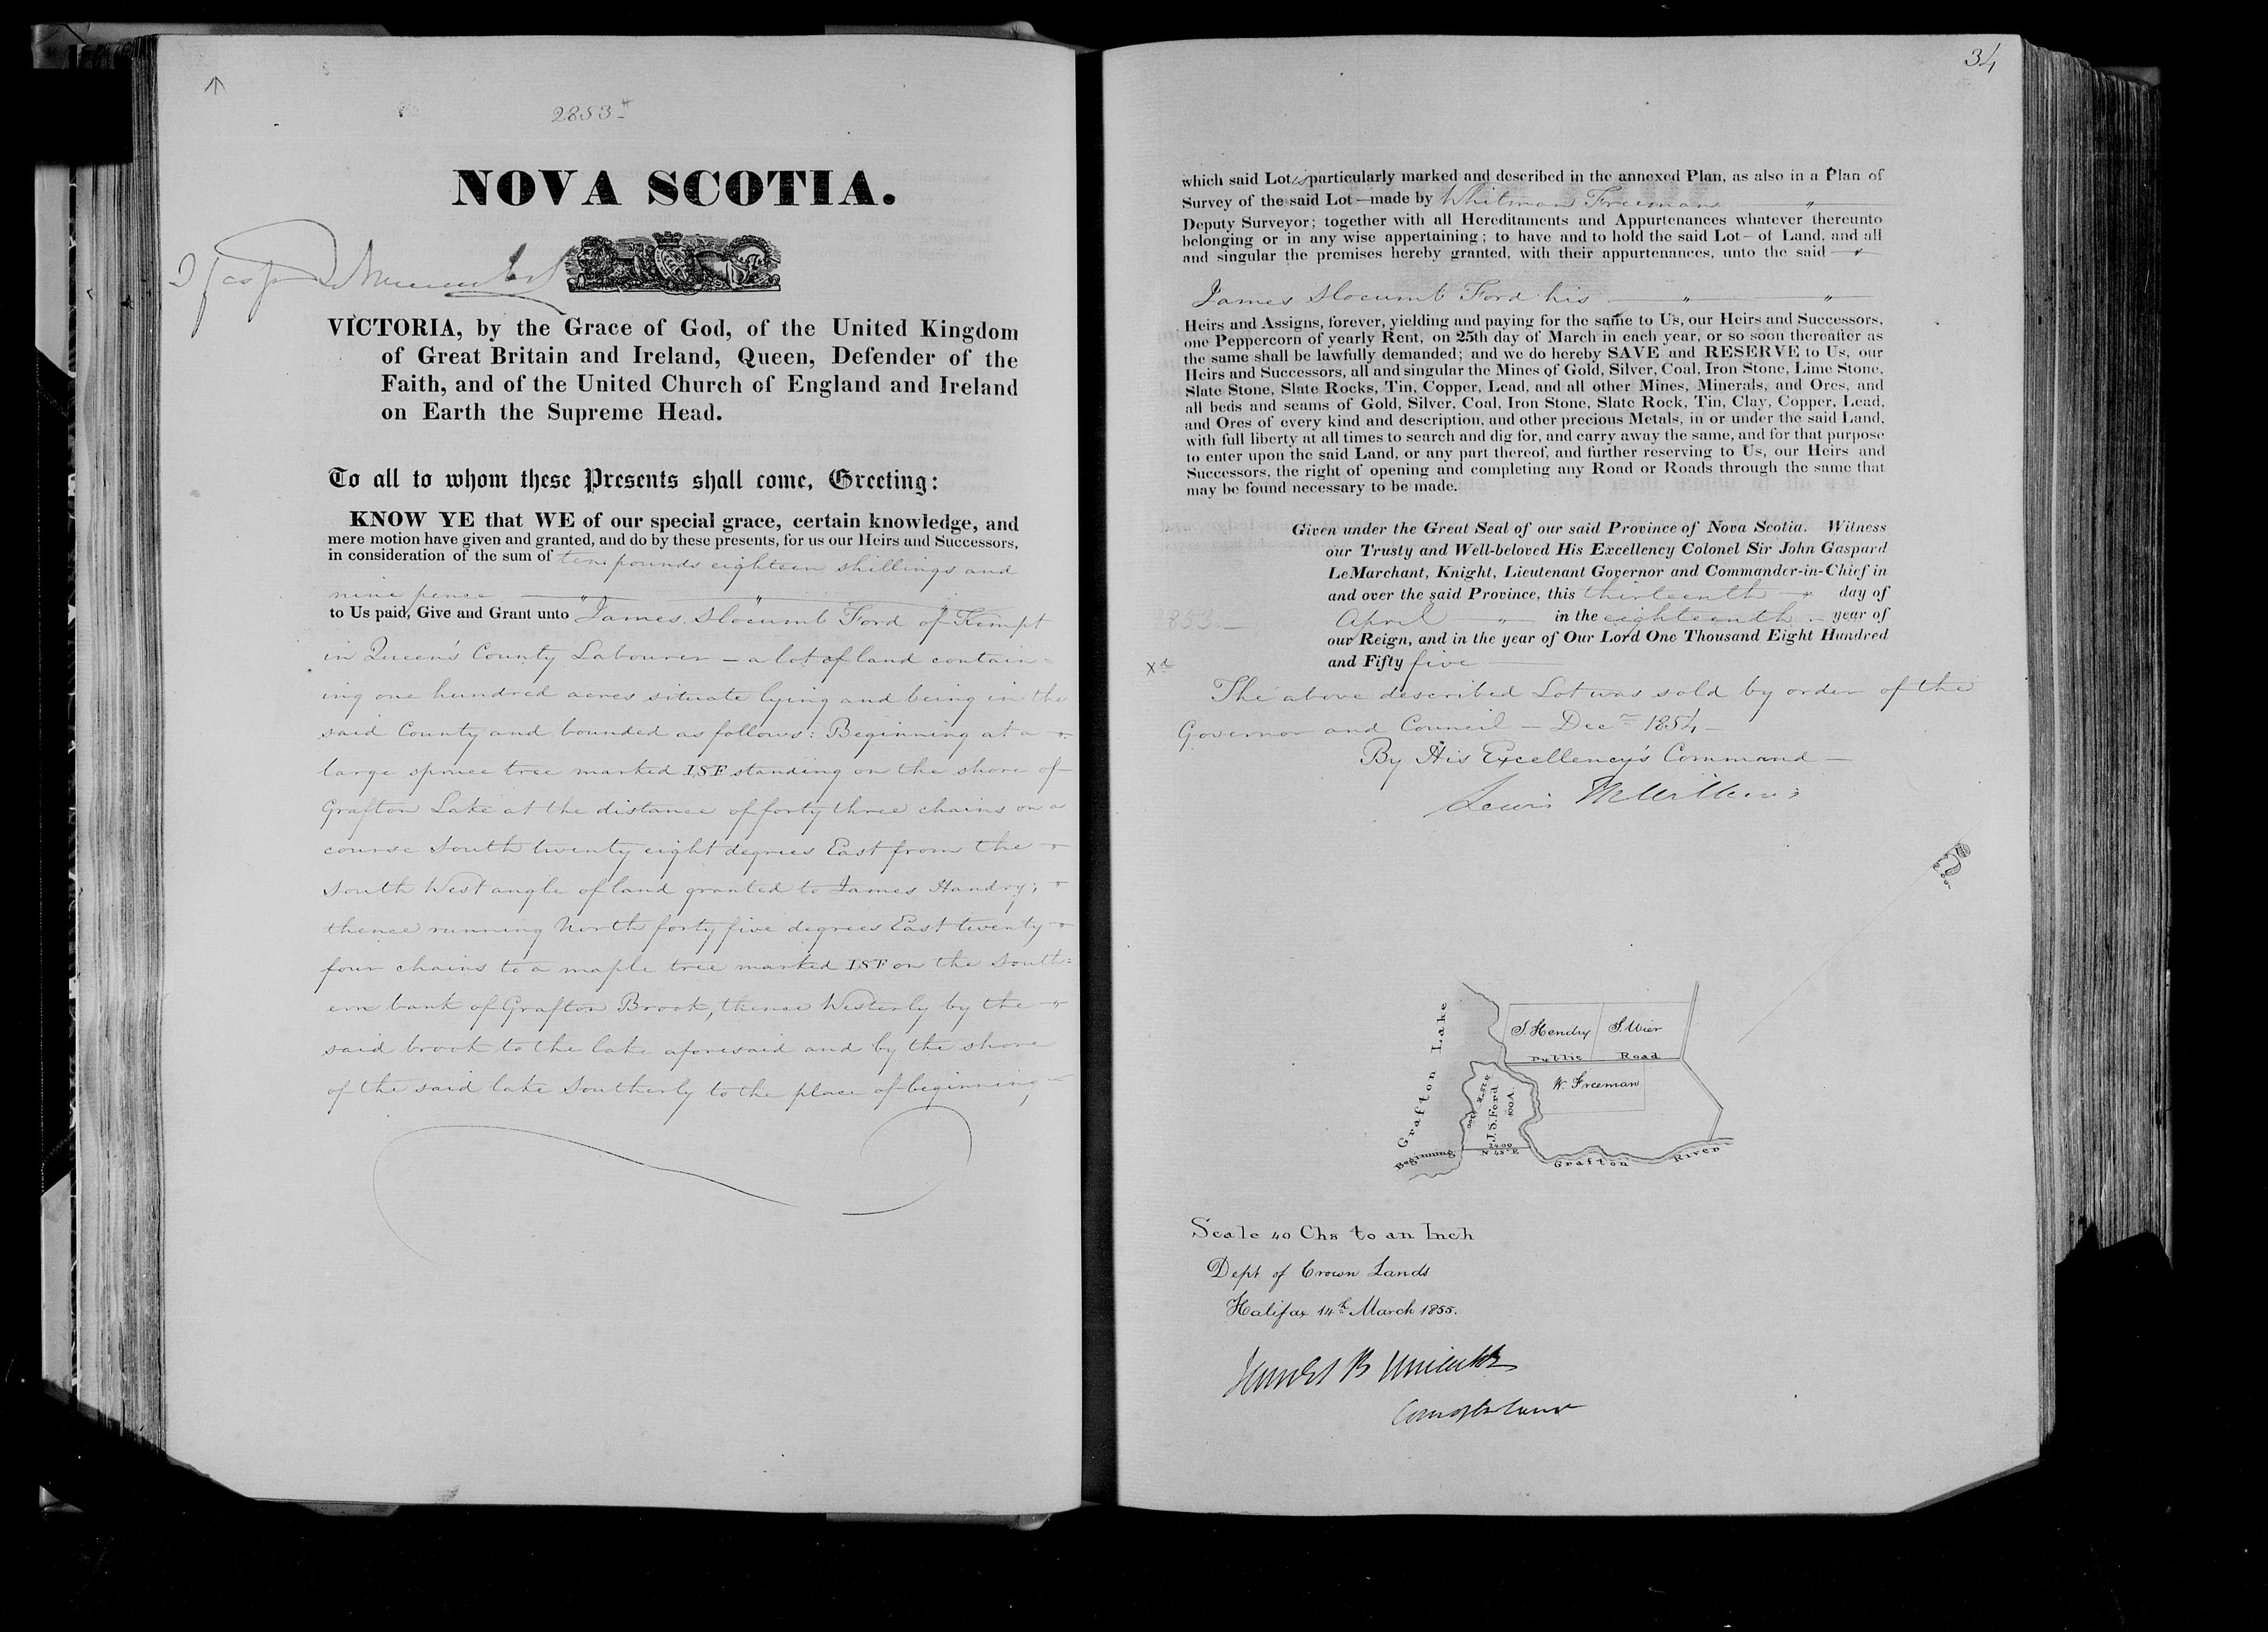 2853
NOVA SCOTIA.
VICTORIA, by the Grace of God, of the United Kingdom
of Great Britain and Ireland, Queen, Defender of the
Faith, and of the United Church of England and Ireland
on Earth the Supreme Head.
To all to whom these Presents shall come, Greeting:
KNOW YE that WE of our special grace, certain knowledge, and
mere motion have given and granted, and do by these presents, for us our Heirs and Successors,
in consideration of the sum of ten pounds eighteen shillings and
nine pence
to Us paid, Give and Grant unto James Slocumb Ford of Kempt
in Queen's County Labourer — a lot of land contain=
ing one hundred acres situate lying and being in the
said County and bounded as follows: Beginning at a
large spruce tree marked ISF standing on the shore of
Grafton Lake at the distance of forty three chains on a
course South twenty eight degrees East from the
South West angle of land granted to James Handry;
thence running North forty five degrees East twenty
four chains to a maple tree marked ISF on the South=
ern bank of Grafton Brook, thence Westerly by the
said brook to the lake aforesaid and by the shore
of the said lake Southerly to the place of beginning,
34
which said Lot is particularly marked and described in the annexed Plan, as also in a Plan of
Survey of the said Lot — made by Whitman Freeman
Deputy Surveyor; together with all Hereditaments and Appurtenances whatever thereunto
belonging or in any wise appertaining; to have and to hold the said Lot — of Land, and all
and singular the premises hereby granted, with their appurtenances, unto the said
James Slocumb Ford his
Heirs and Assigns, forever, yielding and paying for the same to Us, our Heirs and Successors,
one Peppercorn of yearly Rent, on 25th day of March in each year, or so soon thereafter as
the same shall be lawfully demanded; and we do hereby SAVE and RESERVE to Us, our
Heirs and Successors, all and singular the Mines of Gold, Silver, Coal, Iron Stone, Lime Stone,
Slate Stone, Slate Rocks, Tin, Copper, Lead, and all other Mines, Minerals, and Ores, and
all beds and seams of Gold, Silver, Coal, Iron Stone, Slate Rock, Tin, Clay, Copper, Lead,
and Ores of every kind and description, and other precious Metals, in or under the said Land,
with full liberty at all times to search and dig for, and carry away the same, and for that purpose
to enter upon the said Land, or any part thereof, and further reserving to Us, our Heirs and
Successors, the right of opening and completing any Road or Roads through the same that
may be found necessary to be made.
Given under the Great Seal of our said Province of Nova Scotia. Witness
our Trusty and Well-beloved His Excellency Colonel Sir John Gaspard
LeMarchant, Knight, Lieutenant Governor and Commander-in-Chief in
and over the said Province, this thirteenth day of
April in the eighteenth year of
our Reign, and in the year of Our Lord One Thousand Eight Hundred
and Fifty five
The above described Lot was sold by order of the
Governor and Council — Decr 1854 —
By His Excellency's Command —
Lewis M Wilkins
Grafton Lake
J. Hendry
J. Wier
Public Road
W. Freeman
J.S. Ford
100 A.
Beginning
24.00
N 45° E
Grafton River
Scale 40 Chs to an Inch
Dept of Crown Lands
Halifax 14th March 1855.